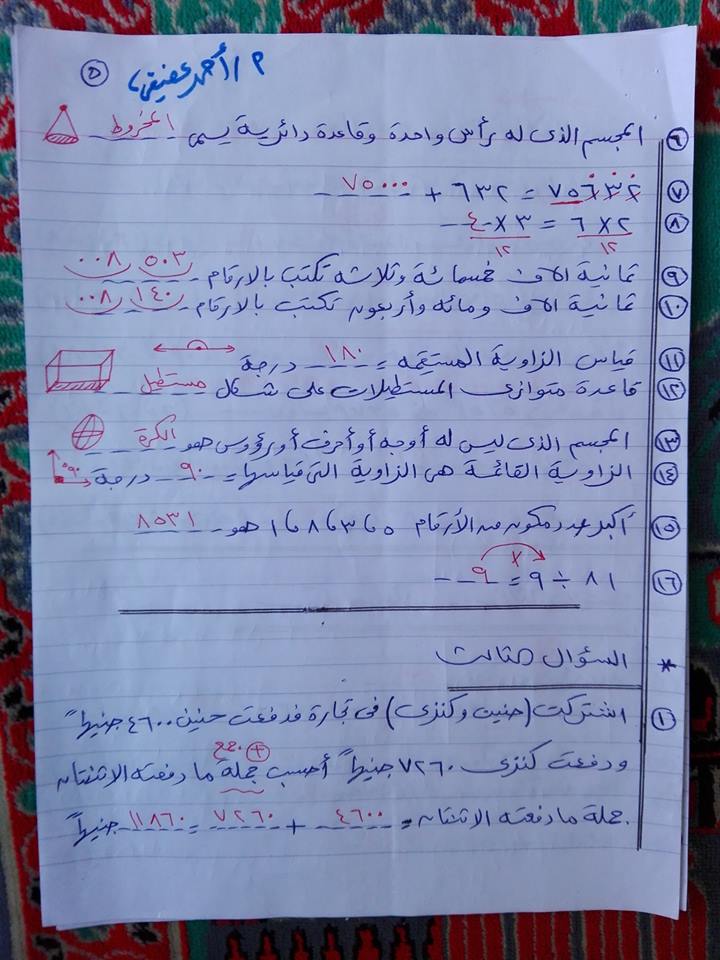 م / أحمد عفيفى ٥
٦ المجسم الذى له رأس واحدة وقاعدة دائرية يسمى المخروط
٧ ٧٥٦٣٢ = ٦٣٢ + ٧٥٠٠٠
٨ ٢ × ٦ = ٣ × ٤
١٢ ١٢
٩ ثمانية الاف خمسمائة وثلاثه تكتب بالارقام ٥٠٣ ٠٠٨
١٠ ثمانية الاف ومائه وأربعون تكتب بالارقام ١٤٠ ٠٠٨
١١ قياس الزاوية المستقيمه = ١٨٠ درجة
١٢ قاعدة متوازى المستطيلات على شكل مستطيل
١٣ المجسم الذى ليس له أوجه أو أحرف أو رؤوس هو الكرة
١٤ الزاوية القائمة هى الزاوية التى قياسها = ٩٠ درجة ٩٠°
١٥ أكبر عدد مكون من الأرقام ٥ ، ٣ ، ٨ ، ١ هو ٨٥٣١
١٦ ٨١ ÷ ٩ = ٩ ×
* السؤال الثالث
١ اشتركت (حنين وكنزى) فى تجارة فدفعت حنين ٤٦٠٠ جنيهاً
ودفعت كنزى ٧٢٦٠ جنيهاً أحسب جملة ما دفعته الاثنتان
جمع +
جملة ما دفعته الاثنتان = ٤٦٠٠ + ٧٢٦٠ = ١١٨٦٠ جنيهاً